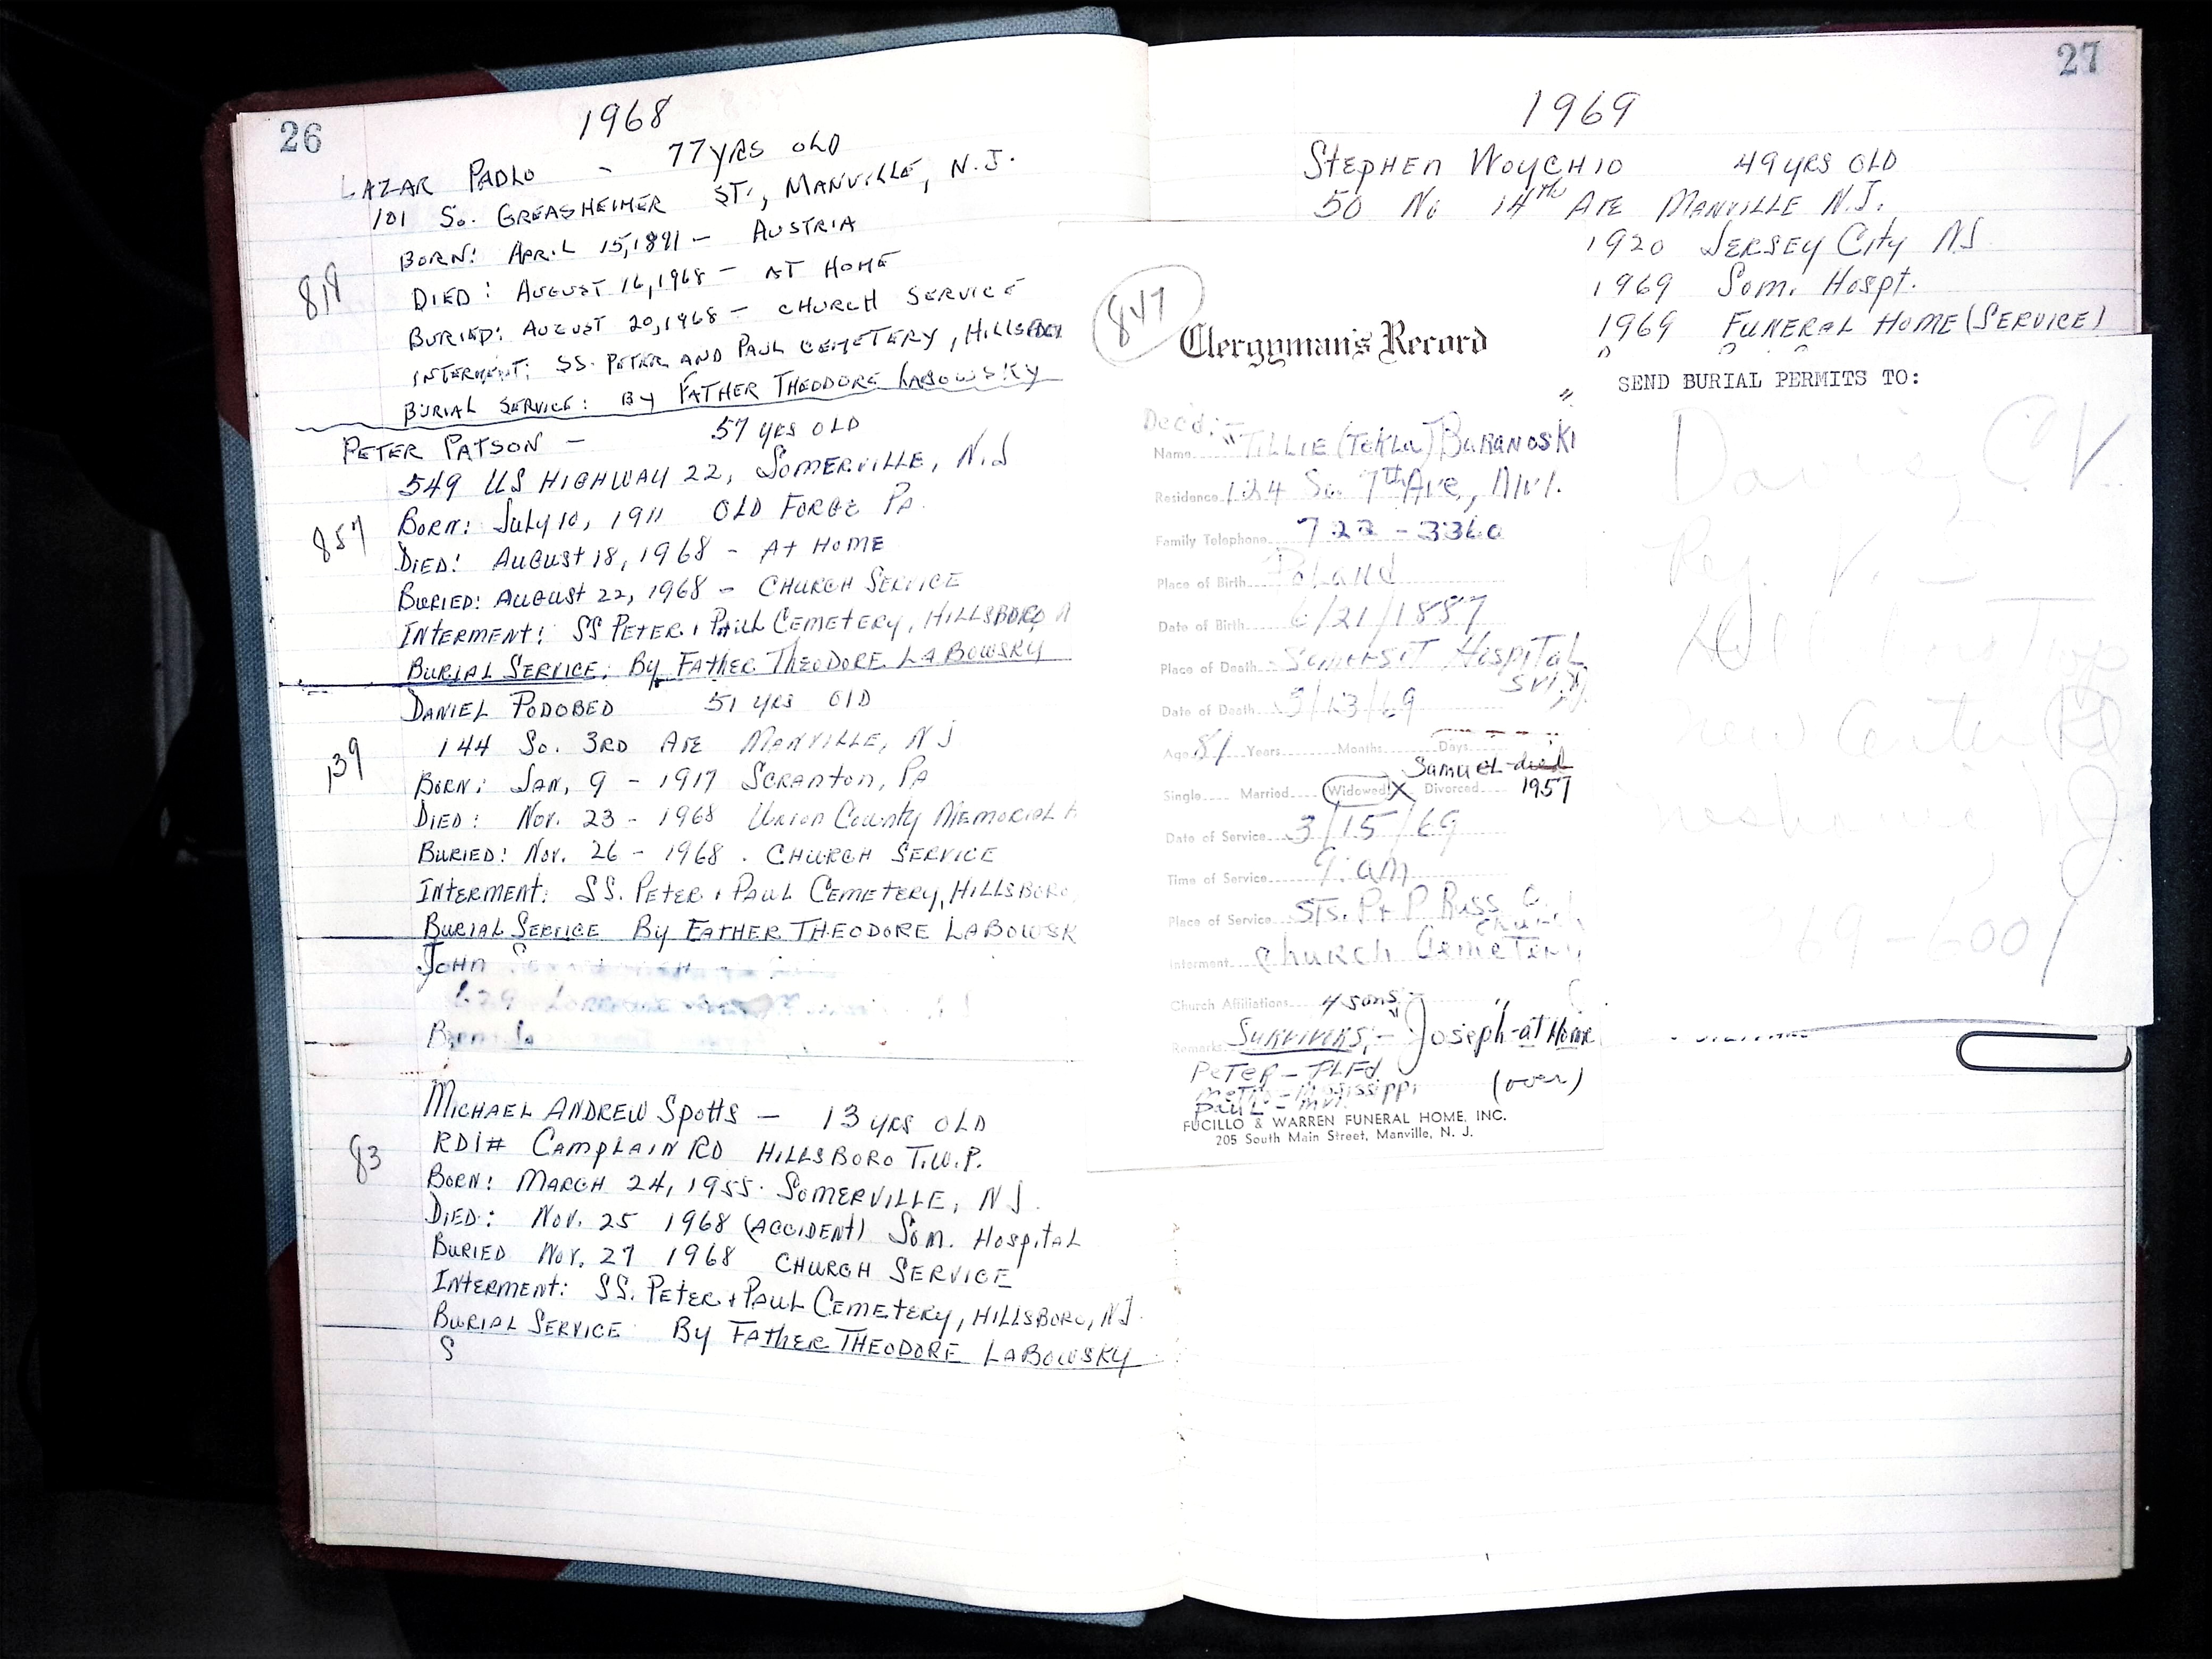 26
1968
LAZAR PADLO - 77 YRS OLD
101 So. GREASHEIMER ST., MANVILLE, N.J.
818
BORN: APRIL 15, 1891 - AUSTRIA
DIED: AUGUST 16, 1968 - AT HOME
BURIED: AUGUST 20, 1968 - CHURCH SERVICE
INTERMENT: SS. PETER AND PAUL CEMETERY, HILLSBORO
BURIAL SERVICE: BY FATHER THEODORE LABOWSKY
PETER PATSON - 57 YRS OLD
549 US HIGHWAY 22, SOMERVILLE, N.J
857
BORN: JULY 10, 1911 OLD FORGE PA.
DIED: AUGUST 18, 1968 - At HOME
BURIED: AUGUST 22, 1968 - CHURCH SERVICE
INTERMENT: SS PETER + PAUL CEMETERY, HILLSBORO N
BURIAL SERVICE: By FATHER THEODORE LABOWSKY
DANIEL PODOBED 51 YRS OLD
144 So. 3RD AVE MANVILLE, NJ
139
BORN: JAN. 9 - 1917 SCRANTON, PA
DIED: NOV. 23 - 1968 UNION COUNTY MEMORIAL H
BURIED: NOV. 26 - 1968. CHURCH SERVICE
INTERMENT: SS. PETER + PAUL CEMETERY, HILLSBORO,
BURIAL SERVICE By FATHER THEODORE LABOWSK
JOHN
MICHAEL ANDREW SPOTTS - 13 YRS OLD
83
RD1# CAMPLAIN RD HILLSBORO T.W.P.
BORN: MARCH 24, 1955. SOMERVILLE, NJ.
DIED: NOV. 25 1968 (ACCIDENT) SOM. HOSPITAL
BURIED NOV. 27 1968 CHURCH SERVICE
INTERMENT: SS. PETER + PAUL CEMETERY, HILLSBORO, NJ.
BURIAL SERVICE By FATHER THEODORE LABOWSKY
S
27
1969
STEPHEN WOYCHIO 49 YRS OLD
50 No 14th AVE MANVILLE N.J.
1920 JERSEY CITY NJ
1969 SOM. HOSPT.
1969 FUNERAL HOME (SERVICE)
847
Clergyman's Record
Dec'd:
Name TILLIE (TEKLA) BURANOSKI
Residence 124 So. 7th Ave, Mvl.
Family Telephone 722-3360
Place of Birth Poland
Date of Birth 6/21/1887
Place of Death SOMERSET HOSPITAL
Date of Death 3/13/69
Age 81 Years Months Days
Samuel-died
Single Married Widowed X Divorced 1957
Date of Service 3/15/69
Time of Service 9: am
Place of Service STS. P+P Russ O. Church
Interment Church Cemetery
Church Affiliations 4 sons
Remarks SURVIVERS:- Joseph-at Home
PETER - PLFd
Mississippi
PAUL - mvl. (over)
FUCILLO & WARREN FUNERAL HOME, INC.
205 South Main Street, Manville, N. J.
SEND BURIAL PERMITS TO:
69-6001